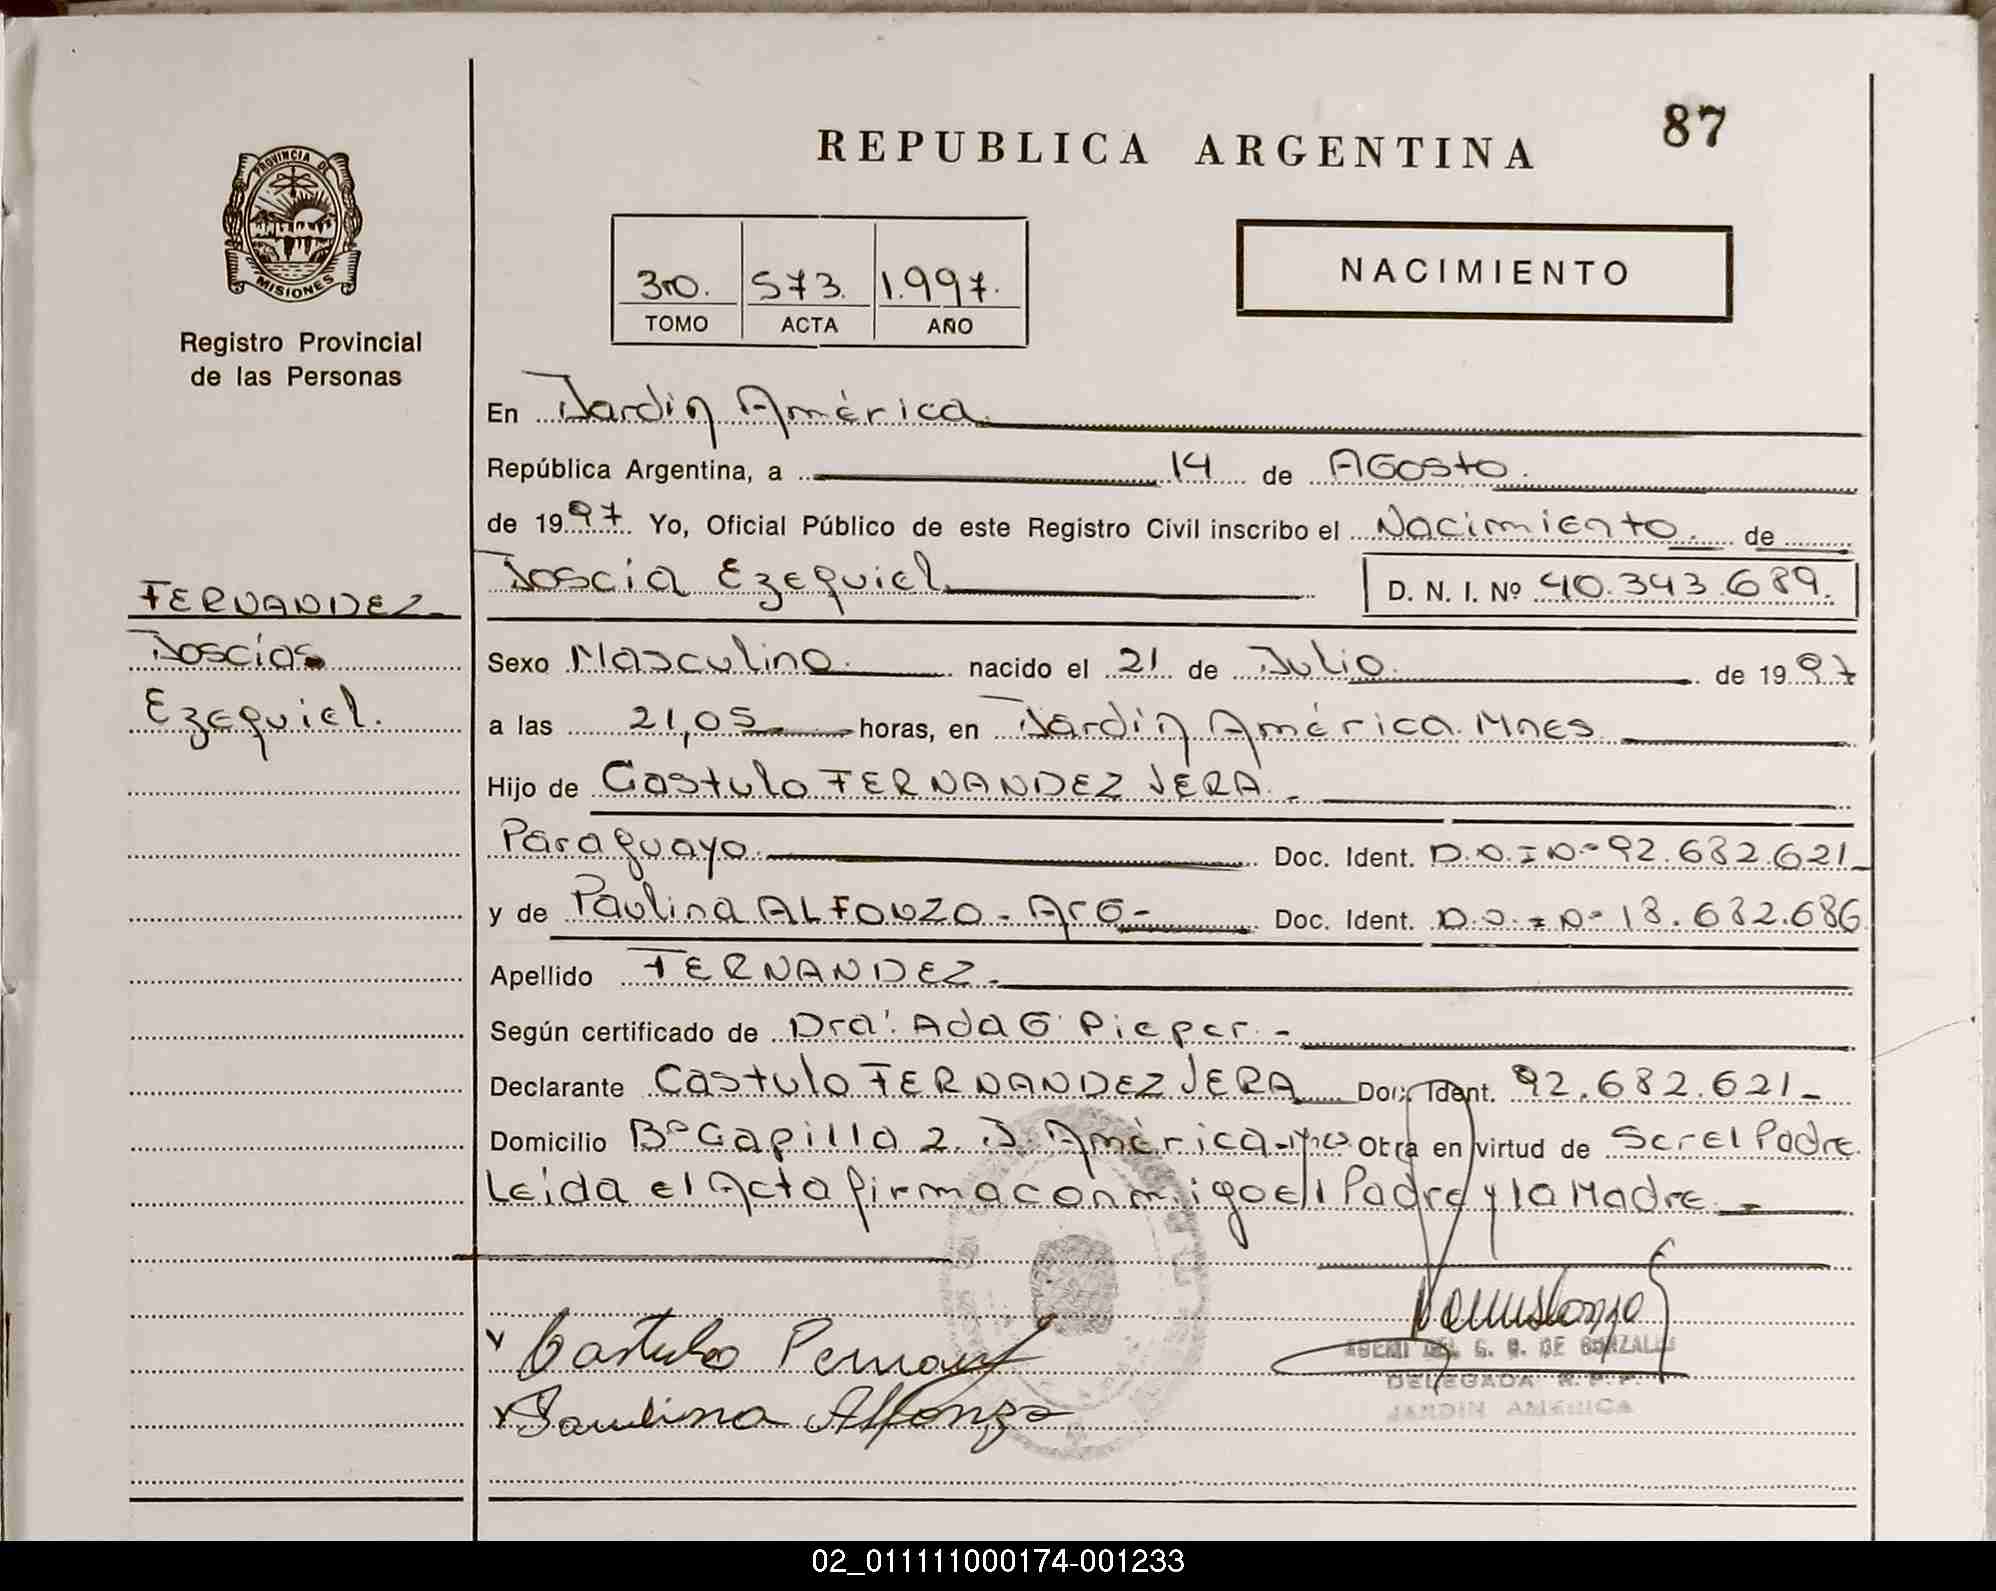 87
REPUBLICA ARGENTINA
PROVINCIA DE
MISIONES
Registro Provincial
de las Personas
3ro. 573. 1.997.
TOMO ACTA AÑO
NACIMIENTO
En Jardin América
República Argentina, a 14 de AGosto.
de 1997. Yo, Oficial Público de este Registro Civil inscribo el Nacimiento. de
Joscia Ezequiel D. N. I. Nº 40.343.689.
FERNANDEZ
Joscias
Ezequiel.
Sexo Masculino. nacido el 21 de Julio. de 1997
a las 21,05 horas, en Jardin América. Mnes
Hijo de Castulo FERNANDEZ JERA.-
Paraguayo. Doc. Ident. D.N.I Nº 92.682.621-
y de Paulina ALFONZO - ArG - Doc. Ident. D.N.I Nº 18.682.686
Apellido FERNANDEZ.
Según certificado de Dra. Ada G Pieper. -
Declarante Castulo FERNANDEZ JERA Doc. Ident. 92.682.621-
Domicilio Bº Capilla 2. J. América - Mnes Obra en virtud de Ser el Padre
Leida el Acta firma conmigo el Padre y la Madre. -
Castulo Fernand
Paulina Alfonzo
DEL G. G. DE GONZALEZ
DELEGADA R.P.P.
JARDIN AMERICA
02_011111000174-001233